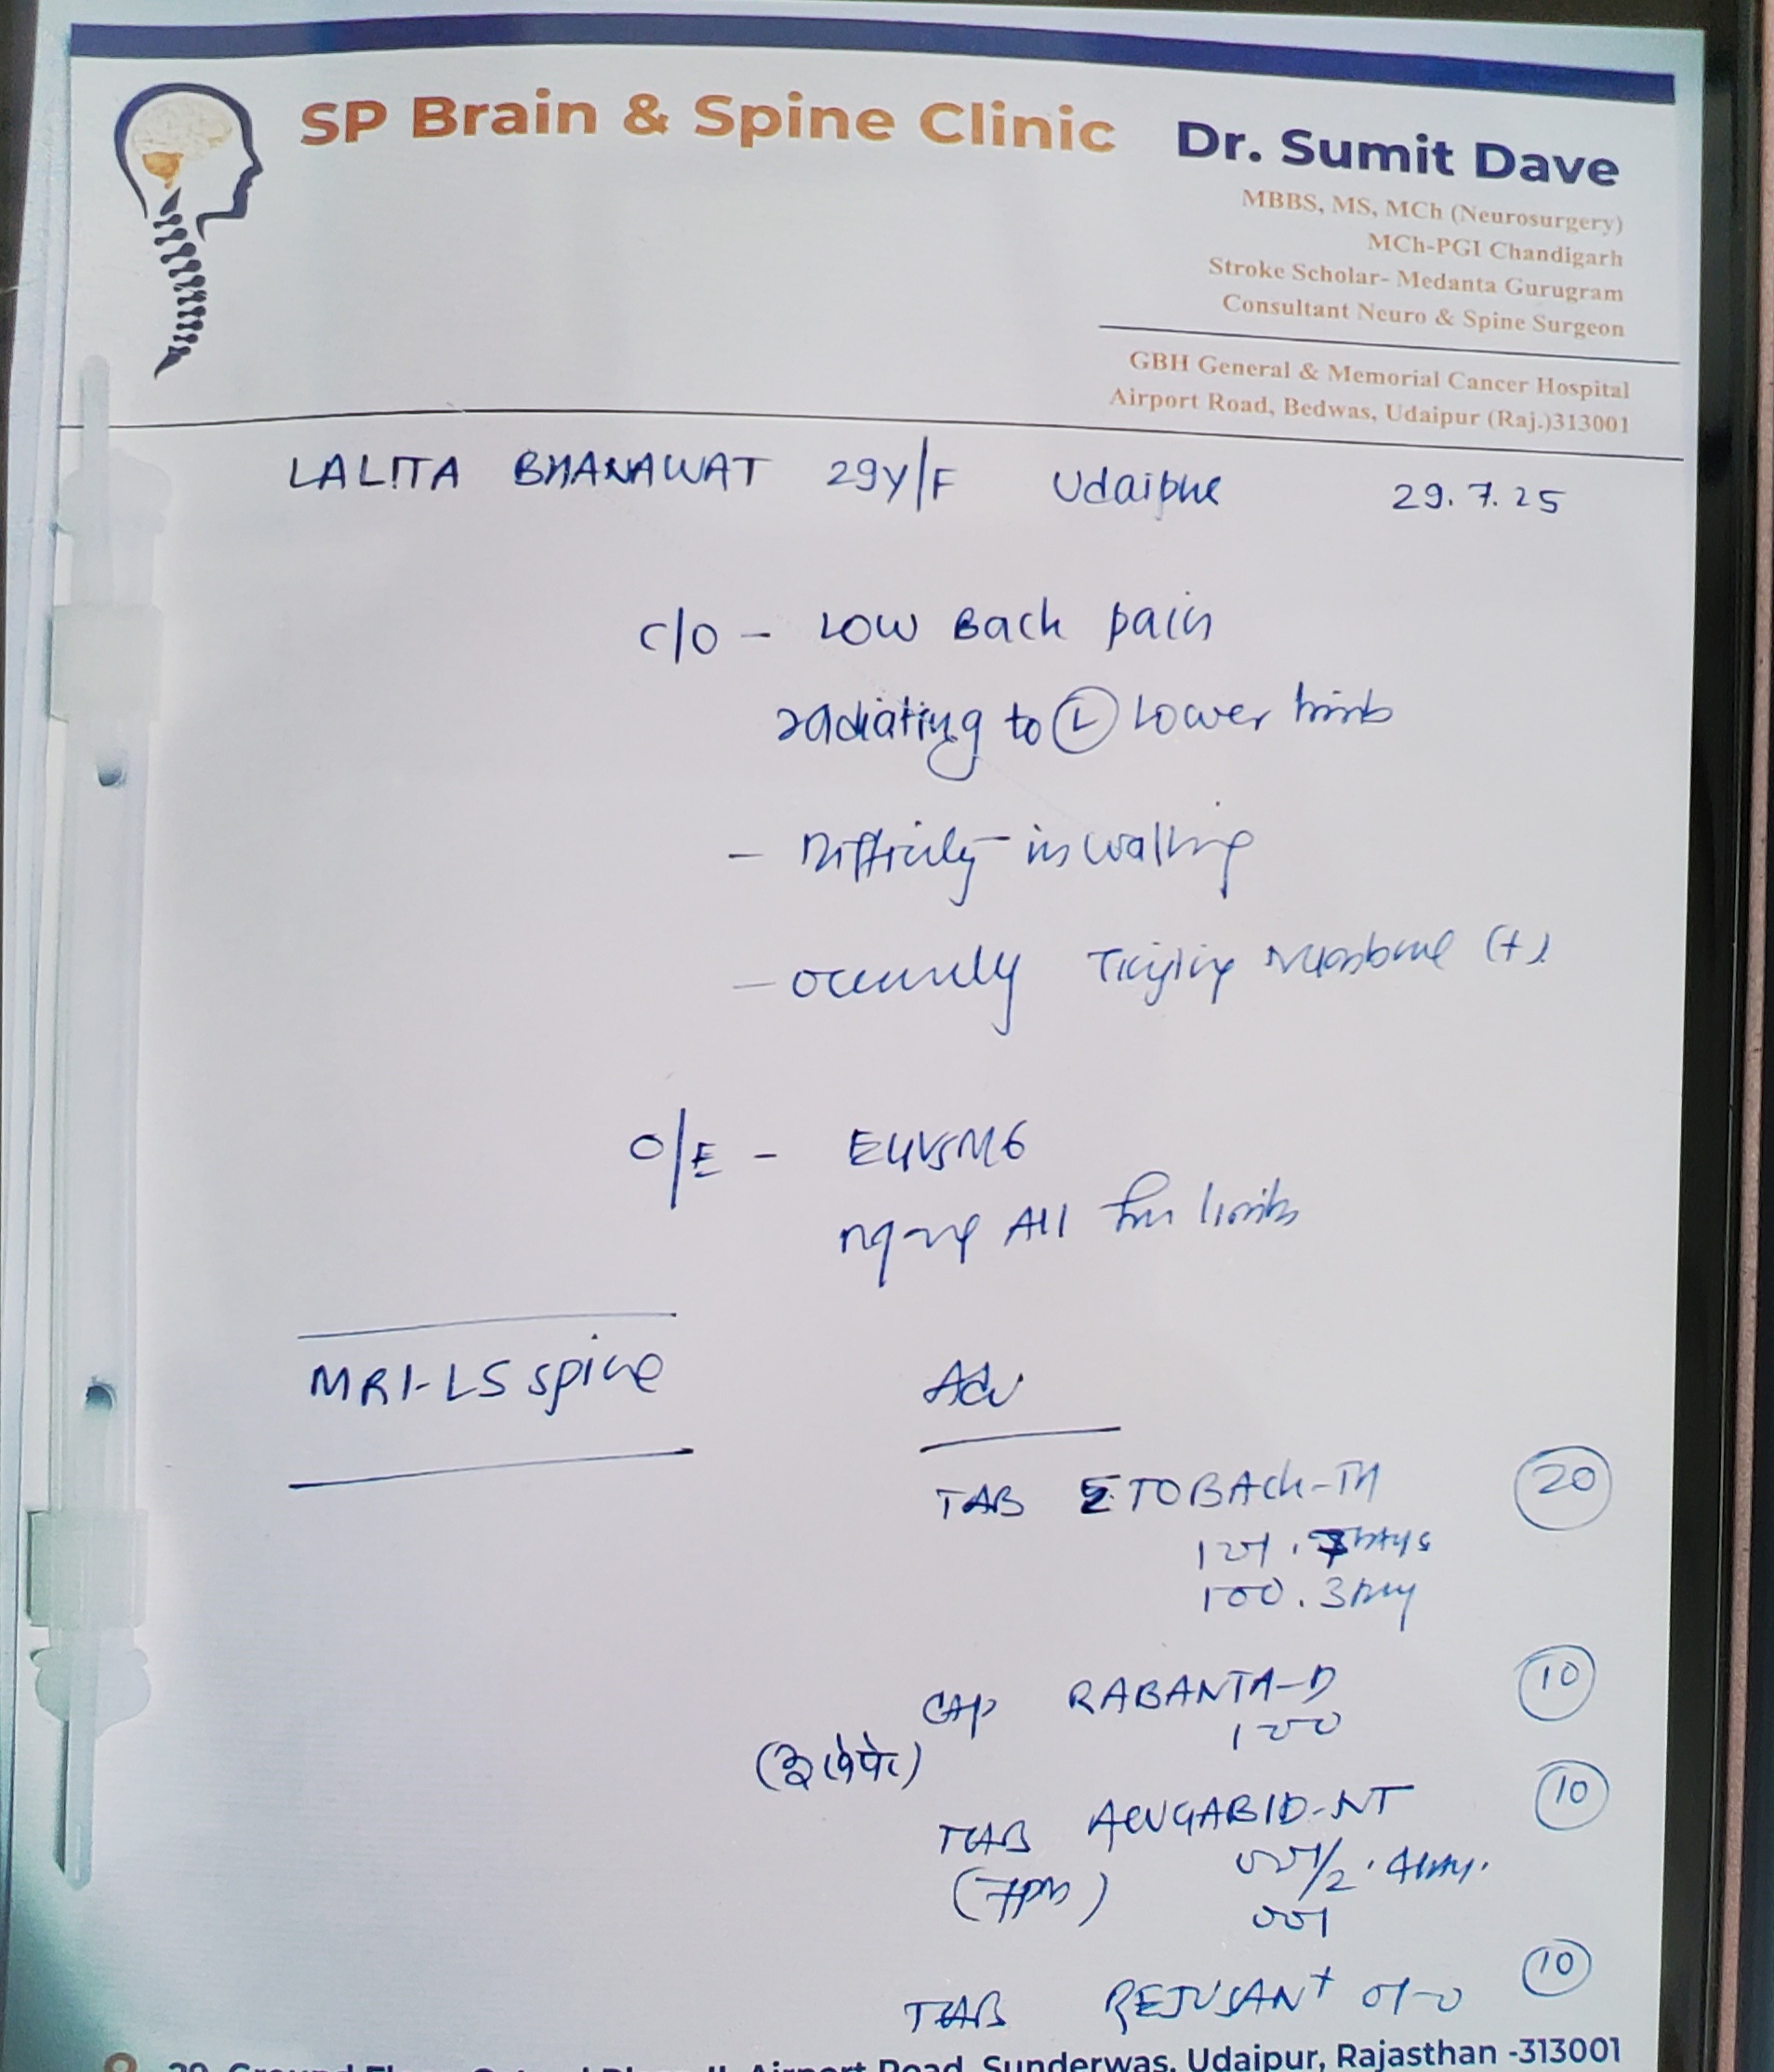 SP Brain & Spine Clinic
Dr. Sumit Dave
MBBS, MS, MCh (Neurosurgery)
MCh-PGI Chandigarh
Stroke Scholar- Medanta Gurugram
Consultant Neuro & Spine Surgeon
GBH General & Memorial Cancer Hospital
Airport Road, Bedwas, Udaipur (Raj.)313001
LALITA BHANAWAT 29Y/F Udaipur 29.7.25
C/O - LOW Back pain
radiating to Ⓛ Lower limb
- Difficulty in walking
- Tingling Numbness (+)
O/E - E4V5M6
All four limbs
MRI-LS spine
Adv
TAB ETOBACK-TH 20
101. 7 DAYS
100. 3 Day
CAP RABANTA-D 10
100
TAB GABID-NT 10
(7pm) 001/2 .
001
TAB REJUSANT 010 10
Airport Road, Sunderwas, Udaipur, Rajasthan -313001